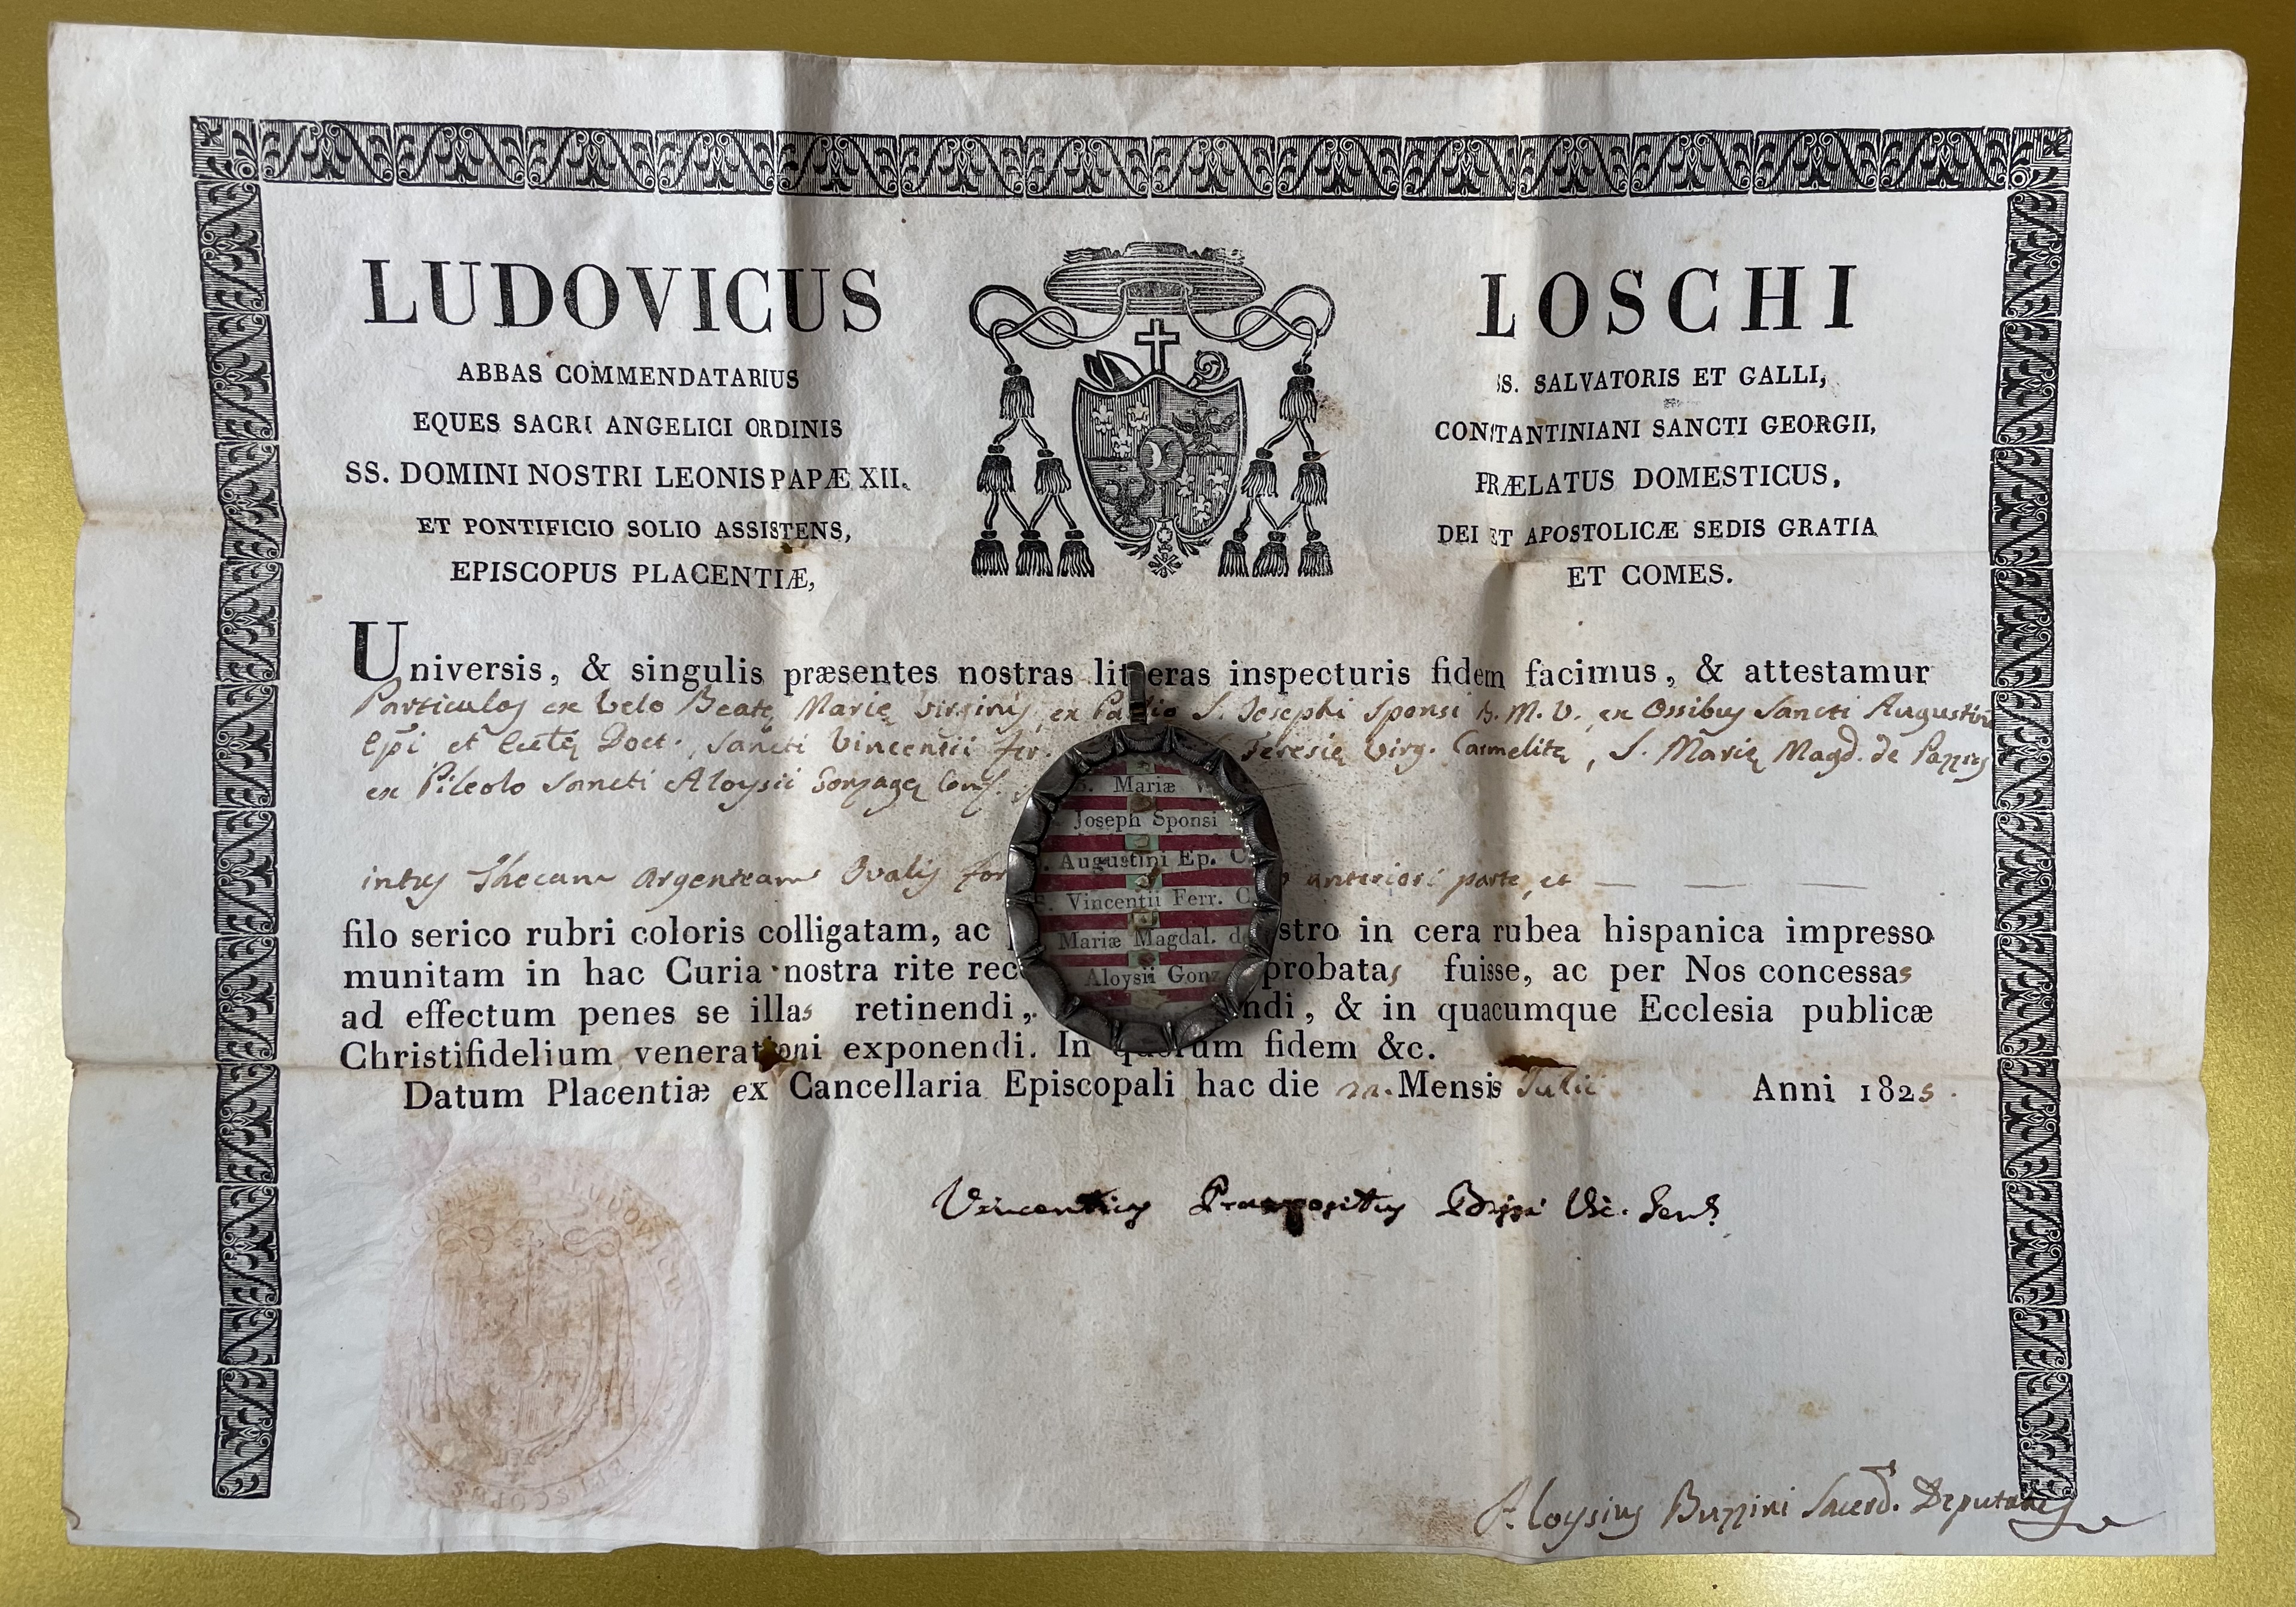 LUDOVICUS LOSCHI
ABBAS COMMENDATARIUS SS. SALVATORIS ET GALLI,
EQUES SACRI ANGELICI ORDINIS CONSTANTINIANI SANCTI GEORGII,
SS. DOMINI NOSTRI LEONIS PAPÆ XII. PRÆLATUS DOMESTICUS,
ET PONTIFICIO SOLIO ASSISTENS, DEI ET APOSTOLICÆ SEDIS GRATIA
EPISCOPUS PLACENTIÆ, ET COMES.
Universis, & singulis præsentes nostras litteras inspecturis fidem facimus, & attestamur
Particulas ex Velo Beatę Marię Virginis, ex Pallio S. Josephi Sponsi B. M. V. ex Ossibus Sancti Augustini
Epi et Doct. Sancti Vincentii Teresię Virg. Carmelitę, S. Marię Magd. de Pazzis
ex Pileolo Sancti Aloysii Gonzagę Conf.
intus Thecam Argenteam Ovalis anteriori parte, et
filo serico rubri coloris colligatam, ac stro in cera rubea hispanica impresso
munitam in hac Curia nostra rite rec probatas fuisse, ac per Nos concessas
ad effectum penes se illas retinendi, ndi, & in quacumque Ecclesia publicæ
Christifidelium venerationi exponendi. In quorum fidem &c.
Datum Placentiæ ex Cancellaria Episcopali hac die Mensis Julii Anni 1825.
Vincentius Praepositus Vic. Gen.
Aloysius Buzzini Sacerd. Deputatus
Mariæ V
Joseph Sponsi
Augustini Ep. C
Vincentii Ferr. C
Mariæ Magdal. d
Aloysii Gonz